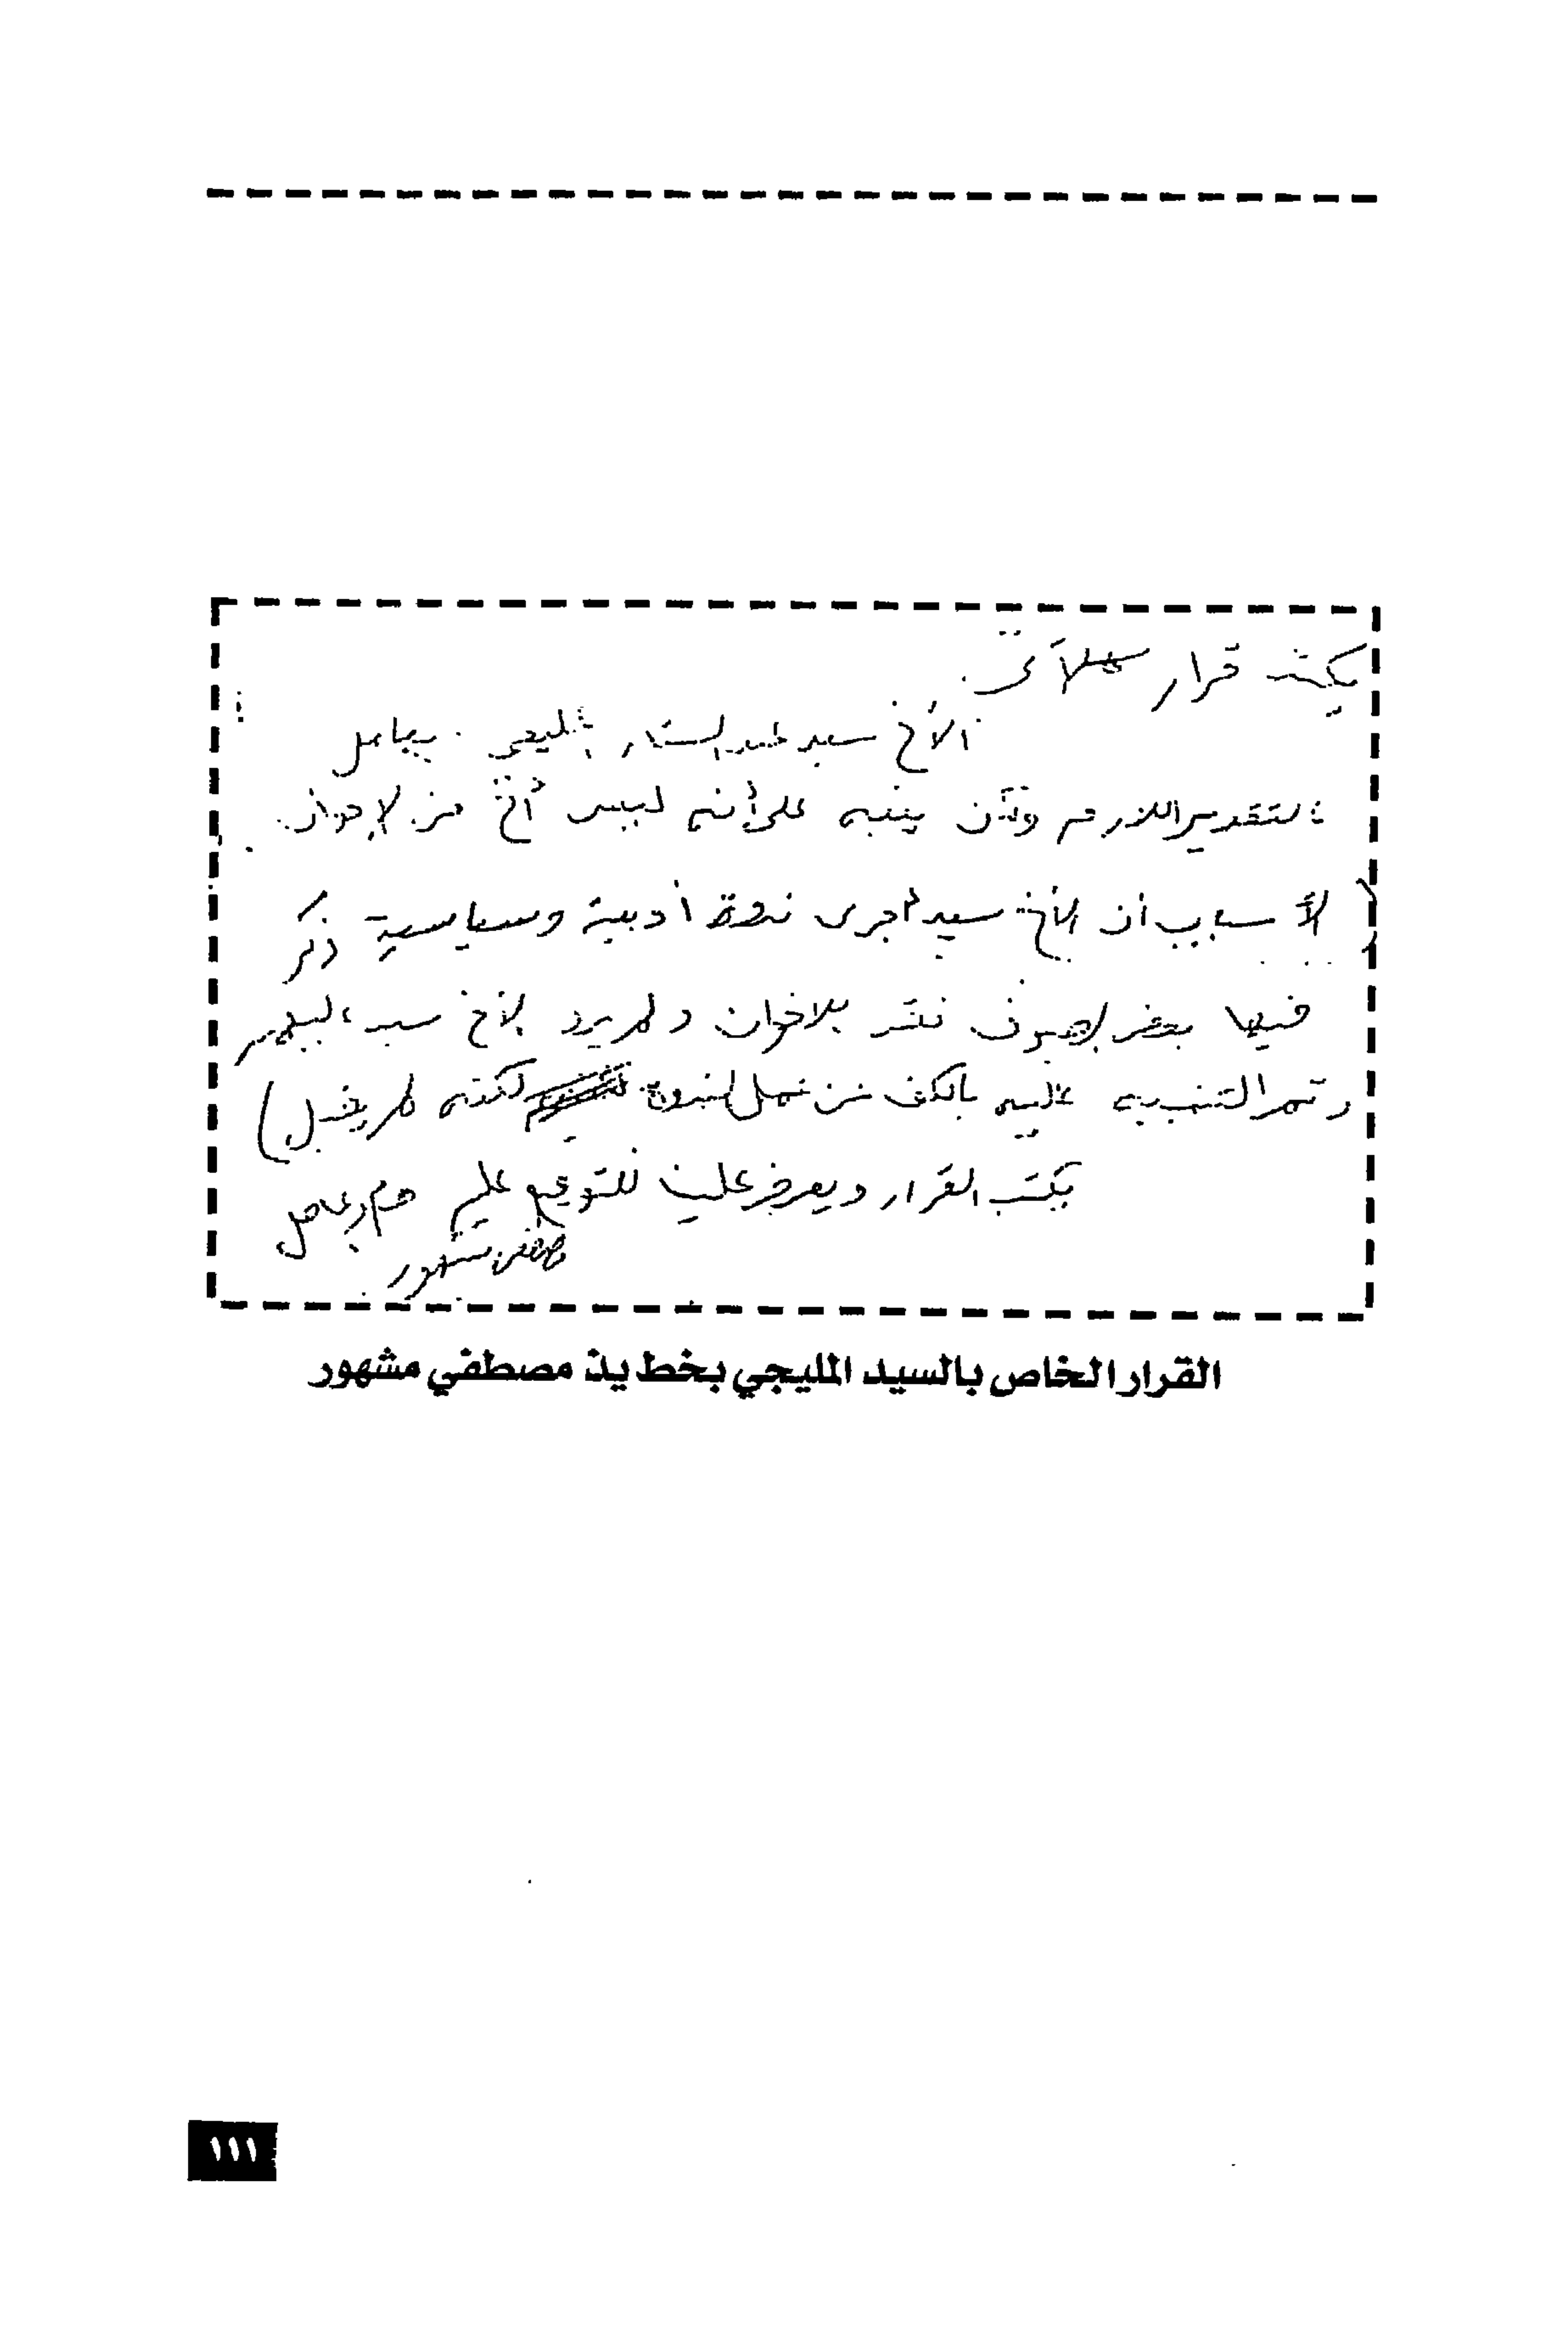 يكتب قرار كالآتى
الأخ سيد عبد الستار المليجى . يعامل
التقدير اللازم ولكن ينبه على أنه ليس أخ من الإخوان
لأسباب أن الأخ سيد أجرى ندوة أدبية وسياسية ذكر
فيها بعض الضيوف نقد للاخوان ولم يرد الأخ سيد المليجى
وتم التنبيه عليه بالكف عن عمل الندوة لكنه لم يقبل )
يكتب القرار ويعرض علينا للتوقيع عليه
مصطفى مشهور
القرار الخاص بالسيد المليجي بخط يد مصطفي مشهور
١١١